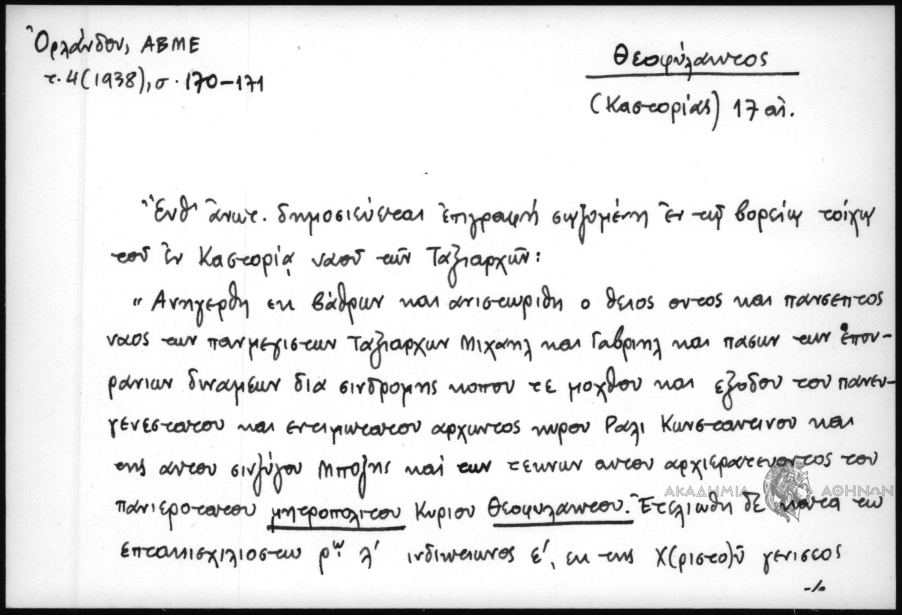 Ὀρλάνδου, ΑΒΜΕ
τ. 4 (1938), σ. 170-171
Θεοφύλακτος
(Καστορίας) 17 αἰ.
Ἔνθ' ἀνωτ. δημοσιεύεται ἐπιγραφή σῳζομένη ἐν τῷ βορείῳ τοίχῳ
τοῦ ἐν Καστορίᾳ ναοῦ τῶν Ταξιαρχῶν:
"Ανηγερθη εκ βάθρων και ανιστωριθη ο θειος ουτος και πανσεπτος
ναος των παμμεγιστων Ταξιαρχων Μιχαηλ και Γαβριηλ και πασων των ἐπου-
ρανιων διναμεων δια σινδρομης κοπου τε μοχθου και εξοδου του πανευ-
γενεστατου και εντιμωτατου αρχωντος κυρου Ραλι Κωνσταντινου και
της αυτου σινζύγου Μποζης και των τεκνων αυτου αρχιερατευοντος του
πανιεροτατου μητροπολιτου Κυριου Θεοφυλακτου. Ετελιωθη δε κατα το
επτακισχιλιοστω ρω λ' ινδικτιωνος ε', εκ της Χ(ριστο)ῦ γενισεος
-/.
ΑΚΑΔΗΜΙΑ ΑΘΗΝΩΝ